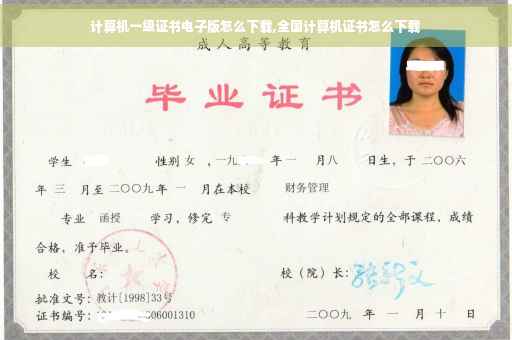 计算机一级证书电子版怎么下载,全国计算机证书怎么下载
成人高等教育
毕业证书
学生 性别 女 ,一九 年 一 月八 日生,于二〇〇六
年 三 月至二〇〇九年 一 月在本校 财务管理
专业 函授 学习,修完 专 科教学计划规定的全部课程,成绩
合格,准予毕业。
校 名: 校(院)长:
批准文号:教计[1998]33号
证书编号: 06001310 二〇〇九 年 一 月 十 日